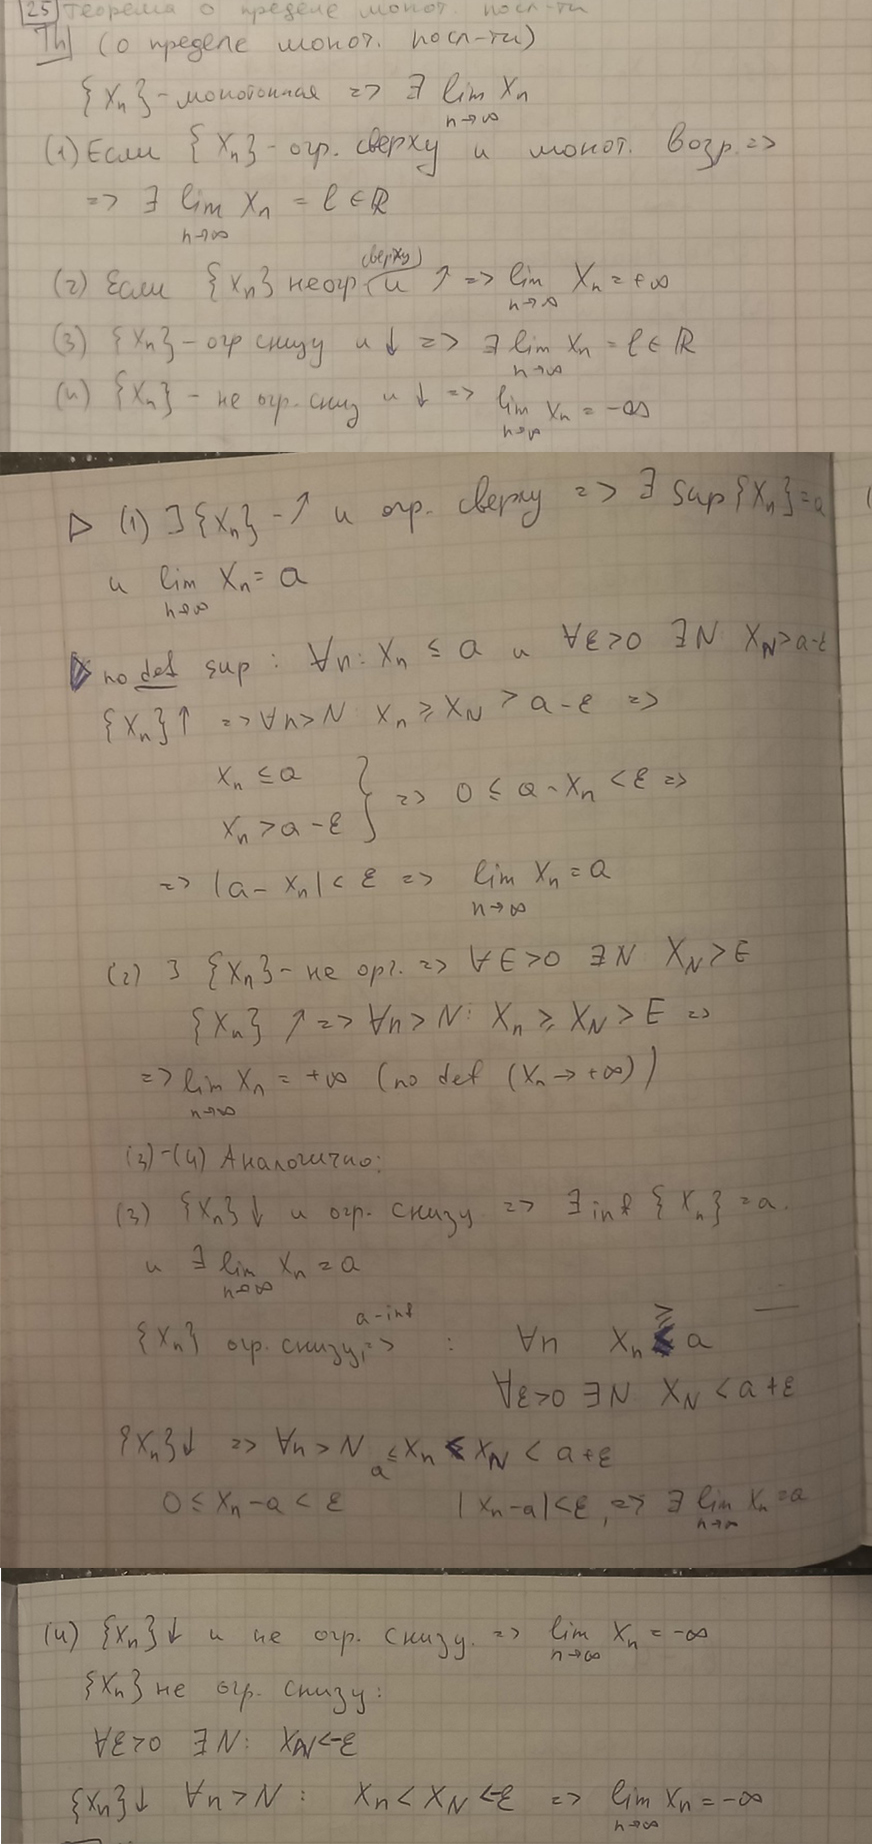 25 Теорема о пределе монот. посл-ти
Th (о пределе монот. посл-ти)
{Xn} - монотонная => ∃ lim Xn
n→∞
(1) Если {Xn} - огр. сверху и монот. возр. =>
=> ∃ lim Xn = l ∈ R
n→∞
(2) Если {Xn} неогр. (сверху) и ↑ => lim Xn = +∞
n→∞
(3) {Xn} - огр снизу и ↓ => ∃ lim Xn = l ∈ R
n→∞
(4) {Xn} - не огр. сниз и ↓ => lim Xn = -∞
n→∞
▷ (1) ∃ {Xn} - ↑ и огр. сверху => ∃ sup{Xn} = a
и lim Xn = a
n→∞
▷ по def sup: ∀n: Xn ≤ a и ∀ε>0 ∃N XN > a-ε
{Xn}↑ => ∀n>N Xn ≥ XN > a-ε =>
Xn ≤ a
Xn > a-ε } => 0 ≤ a-Xn < ε =>
=> |a-Xn| < ε => lim Xn = a
n→∞
(2) ∃ {Xn} - не орг. => ∀E>0 ∃N XN > E
{Xn} ↑ => ∀n>N: Xn ≥ XN > E =>
=> lim Xn = +∞ (по def (Xn → +∞))
n→∞
(3)-(4) Аналогично:
(3) {Xn}↓ и огр. снизу => ∃ inf {Xn} = a.
и ∃ lim Xn = a
n→∞
{Xn} огр. снизу, a-inf => : ∀n Xn ≥ a
∀ε>0 ∃N XN < a+ε
{Xn}↓ => ∀n>N a ≤ Xn ≤ XN < a+ε
0 ≤ Xn-a < ε |Xn-a| < ε, => ∃ lim Xn = a
n→∞
(4) {Xn}↓ и не огр. снизу. => lim Xn = -∞
n→∞
{Xn} не огр. снизу:
∀ε>0 ∃N: XN < -ε
{Xn}↓ ∀n>N: Xn < XN < -ε => lim Xn = -∞
n→∞